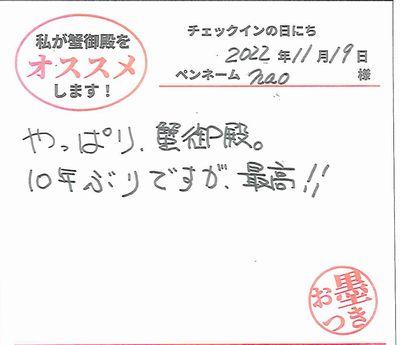 私が蟹御殿を
オススメ
します！
チェックインの日にち
2022年11月19日
ペンネーム nao 様
やっぱり、蟹御殿。
10年ぶりですが、最高!!
お墨つき